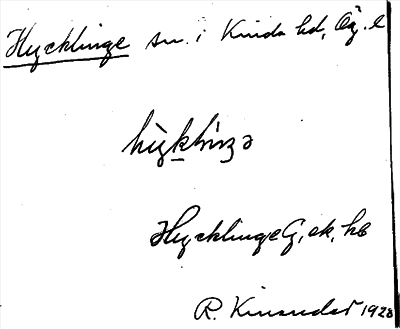 Hycklinge sn. i Kinda hd, Ög. l
Hycklinge G, ek, hb
R. Kinander 1928